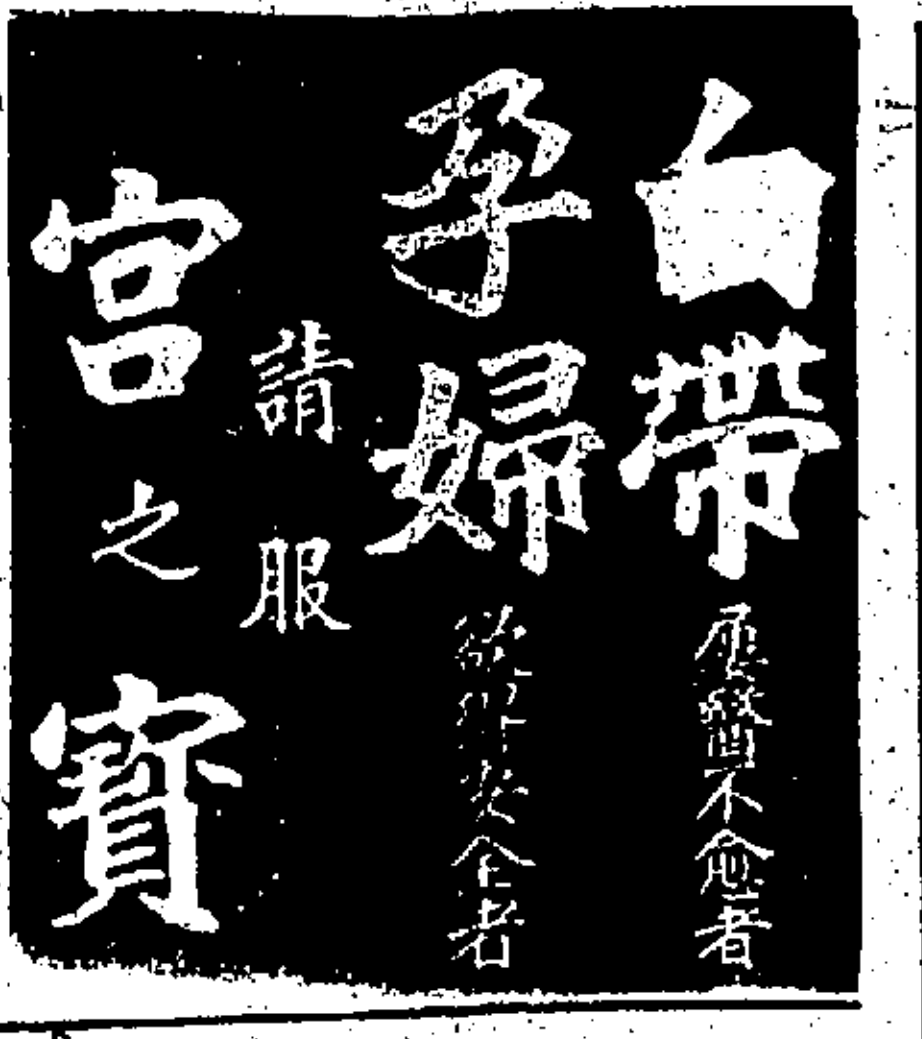 白帶屢醫不愈者
孕婦欲保安全者
請服
宮之寶